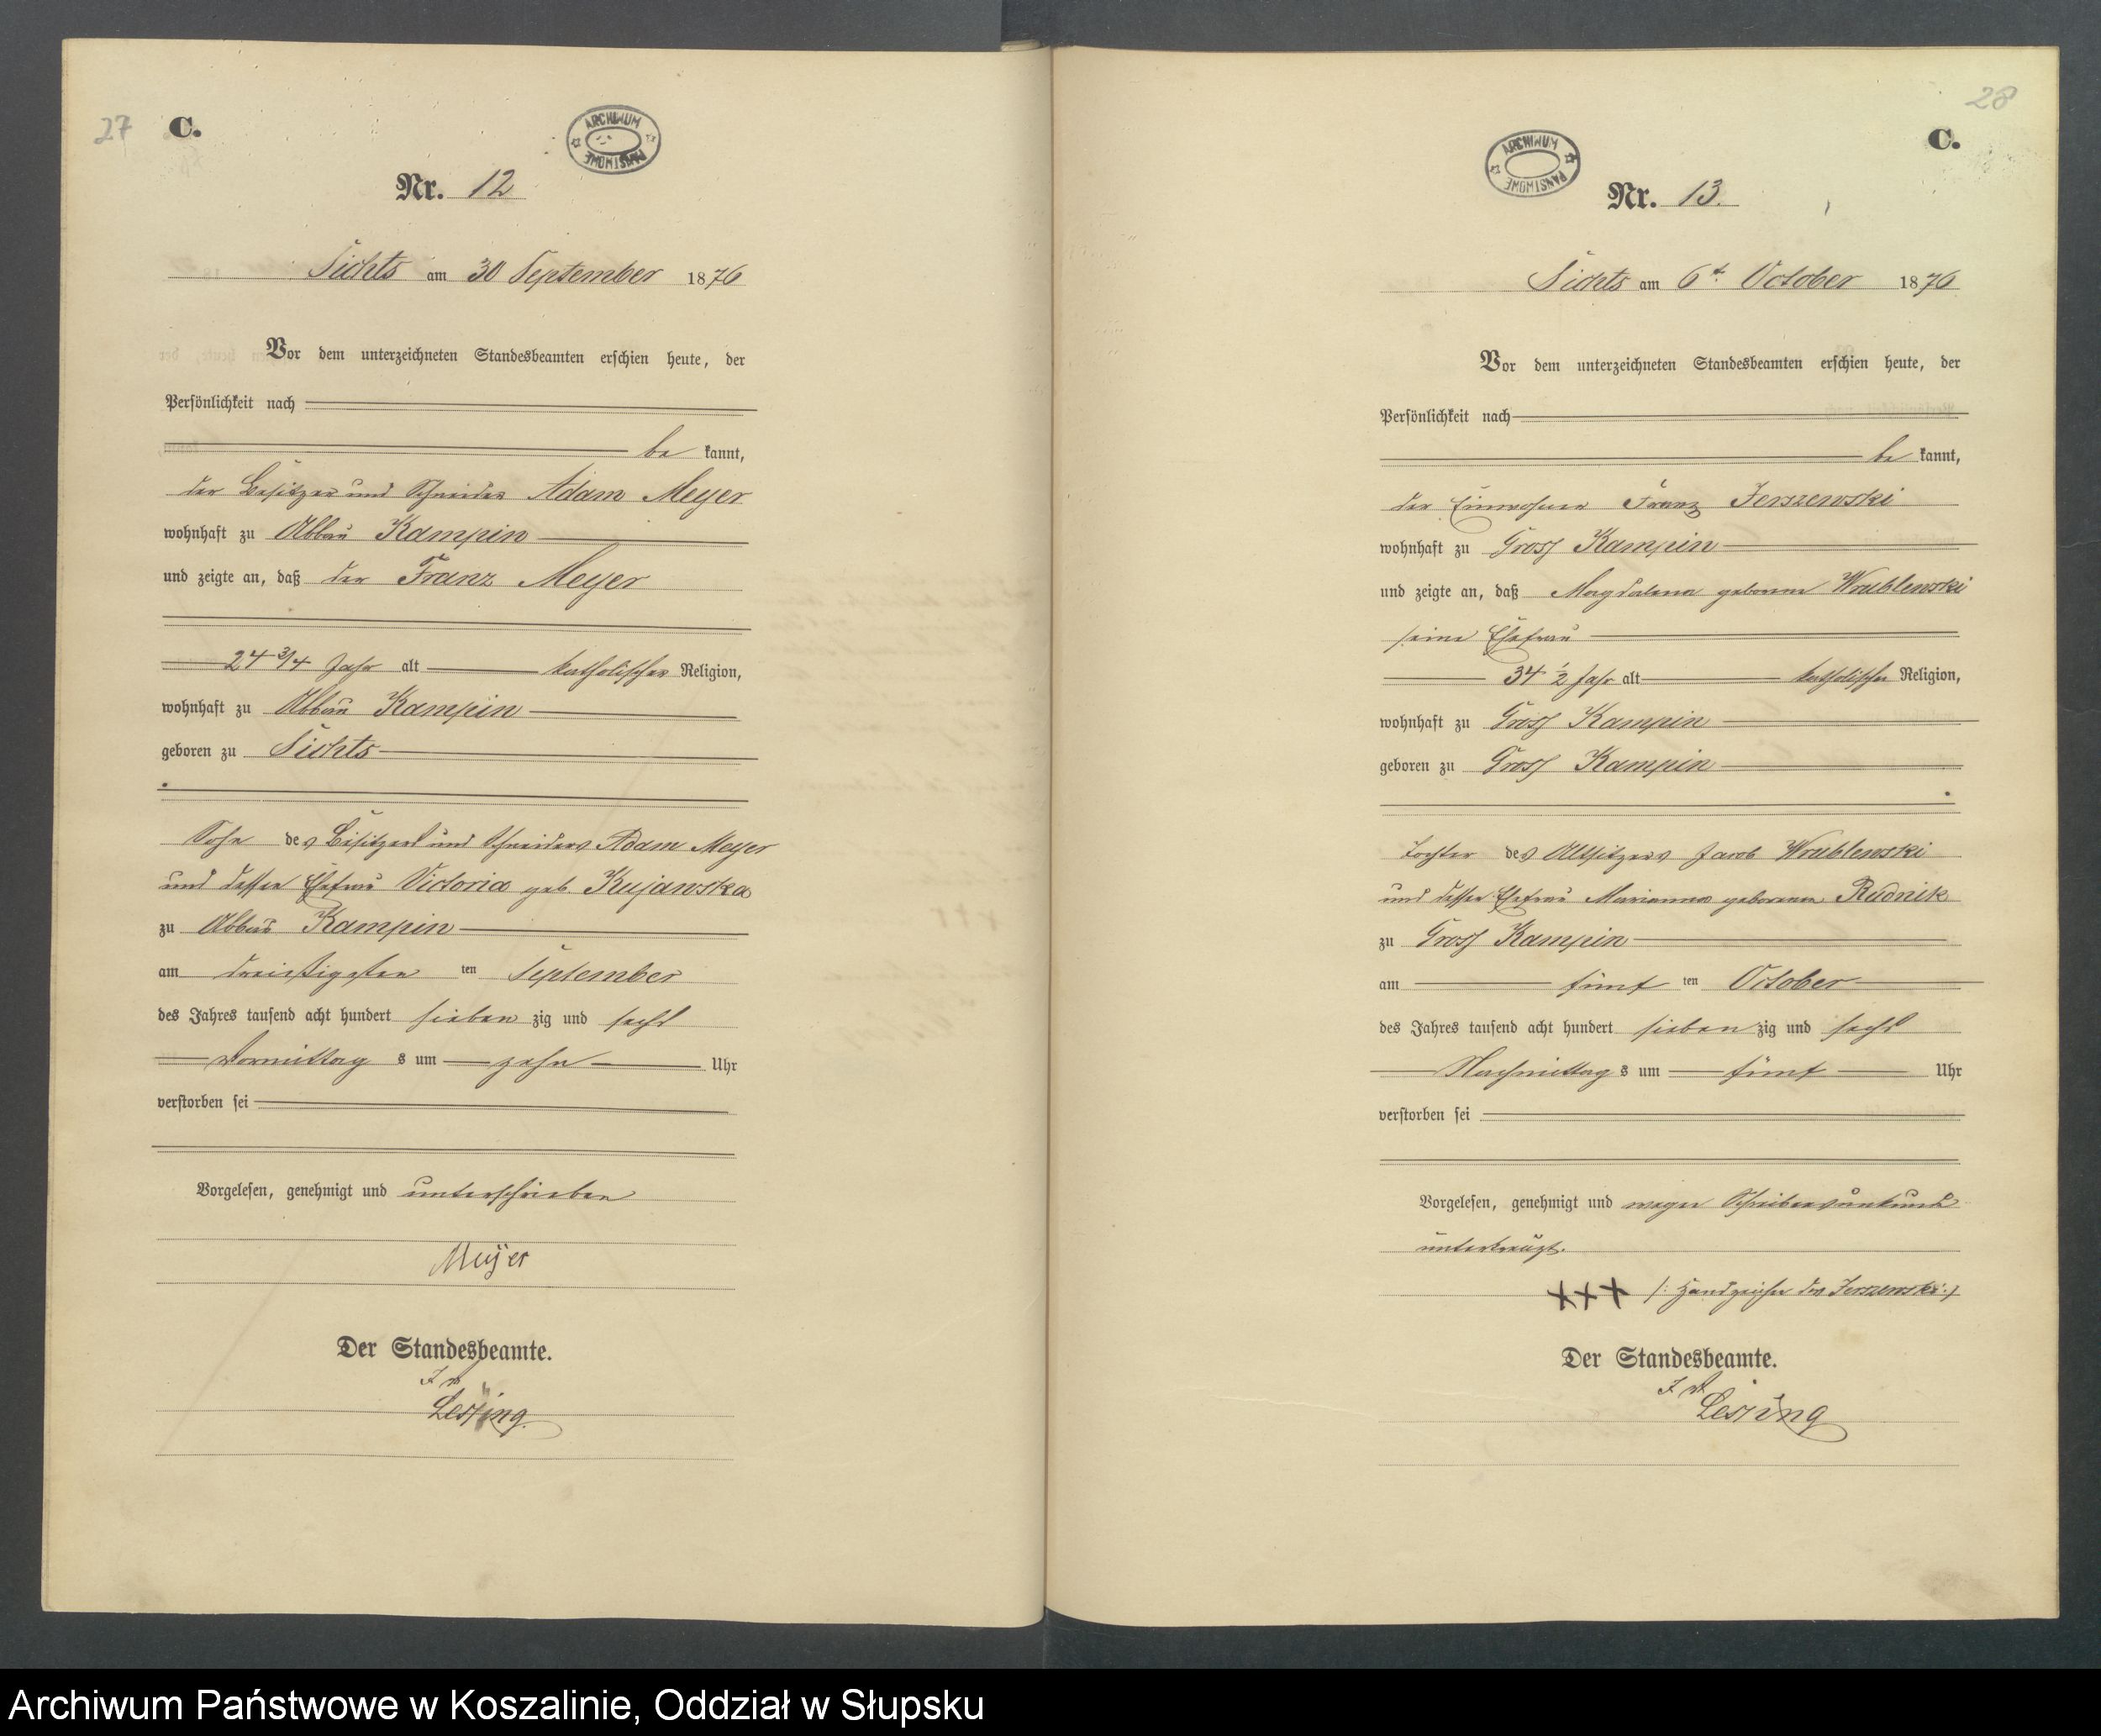 27
C.
ARCHIWUM PAŃSTWOWE
Nr. 12
Sichts am 30 September 1876
Vor dem unterzeichneten Standesbeamten erschien heute, der
Persönlichkeit nach
be kannt,
der Besitzer und Schneider Adam Meyer
wohnhaft zu Abbau Kampin
und zeigte an, daß der Franz Meyer
24 3/4 Jahr alt katholischer Religion,
wohnhaft zu Abbau Kampin
geboren zu Sichts
Sohn des Besitzers und Schneiders Adam Meyer
und dessen Ehefrau Victoria geb. Kujawska
zu Abbau Kampin
am dreißigsten ten September
des Jahres tausend acht hundert sieben zig und sechs
Vormittag s um zehn Uhr
verstorben sei
Vorgelesen, genehmigt und unterschrieben
Meyer
Der Standesbeamte.
I V
Lessing
28
C.
ARCHIWUM PAŃSTWOWE
Nr. 13.
Sichts am 6t. October 1876
Vor dem unterzeichneten Standesbeamten erschien heute, der
Persönlichkeit nach
be kannt,
der Einwohner Franz Jerszewski
wohnhaft zu Gross Kampin
und zeigte an, daß Magdalena geborene Wrublewski
seine Ehefrau
34 1/2 Jahr alt katholischer Religion,
wohnhaft zu Gross Kampin
geboren zu Gross Kampin
Tochter des Altsitzers Jacob Wrublewski
und dessen Ehefrau Marianna geborenen Rudnik
zu Gross Kampin
am fünf ten October
des Jahres tausend acht hundert sieben zig und sechs
Nachmittag s um fünf Uhr
verstorben sei
Vorgelesen, genehmigt und wegen Schreibensunkunde
unterkreuzt.
+++ /: Handzeichen des Jerszewski :/
Der Standesbeamte.
I V
Lessing
Archiwum Państwowe w Koszalinie, Oddział w Słupsku